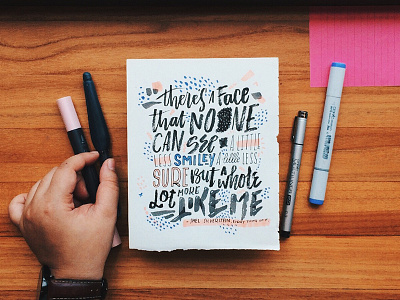 there's A Face
that NO ONE
CAN See - A LITTLE
LESS SMILEY A little LESS
SURE But A Whole
Lot MORE
LIKE ME